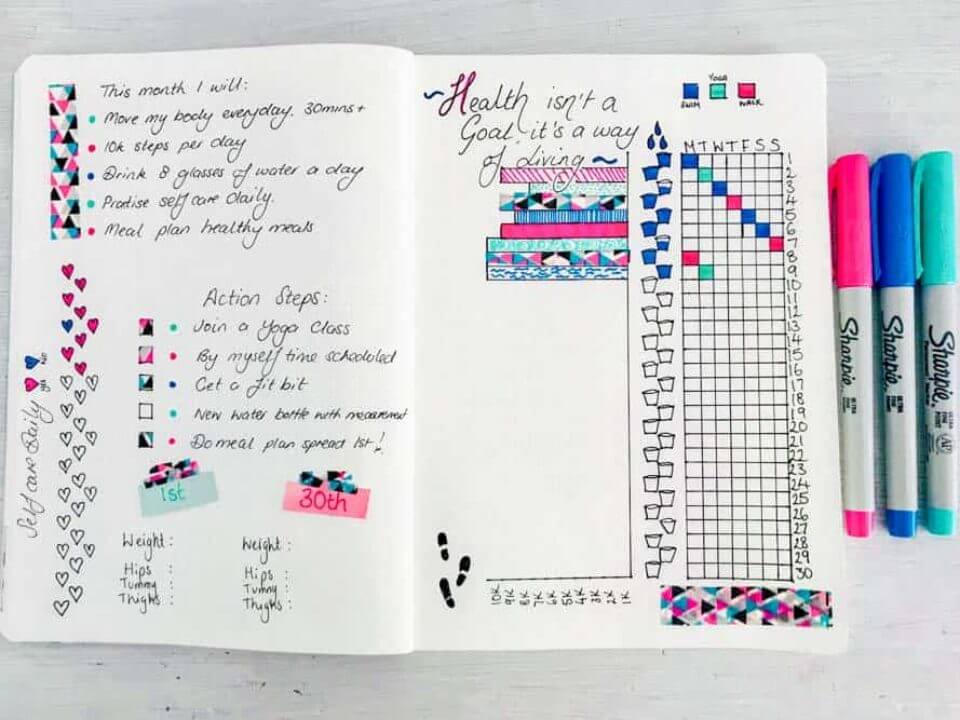 This month I will:
Move my body everyday. 30mins+
10k steps per day
Drink 8 glasses of water a day
Practise self care daily.
Meal plan healthy meals
Action Steps:
Join a Yoga Class
By myself time scheduled
Get a fit bit
New water bottle with measurement
Do meal plan spread 1st!
Self care Daily
yes
no
1st
30th
Weight:
Hips :
Tummy :
Thighs :
Weight :
Hips :
Tummy :
Thighs :
~Health isn't a
Goal, it's a way
of living~
YOGA
SWIM
WALK
M T W T F S S
1
2
3
4
5
6
7
8
9
10
11
12
13
14
15
16
17
18
19
20
21
22
23
24
25
26
27
28
29
30
10K
9K
8K
7K
6K
5K
4K
3K
2K
1K
Sharpie
ULTRA FINE POINT
Sharpie
ULTRA FINE POINT
Sharpie